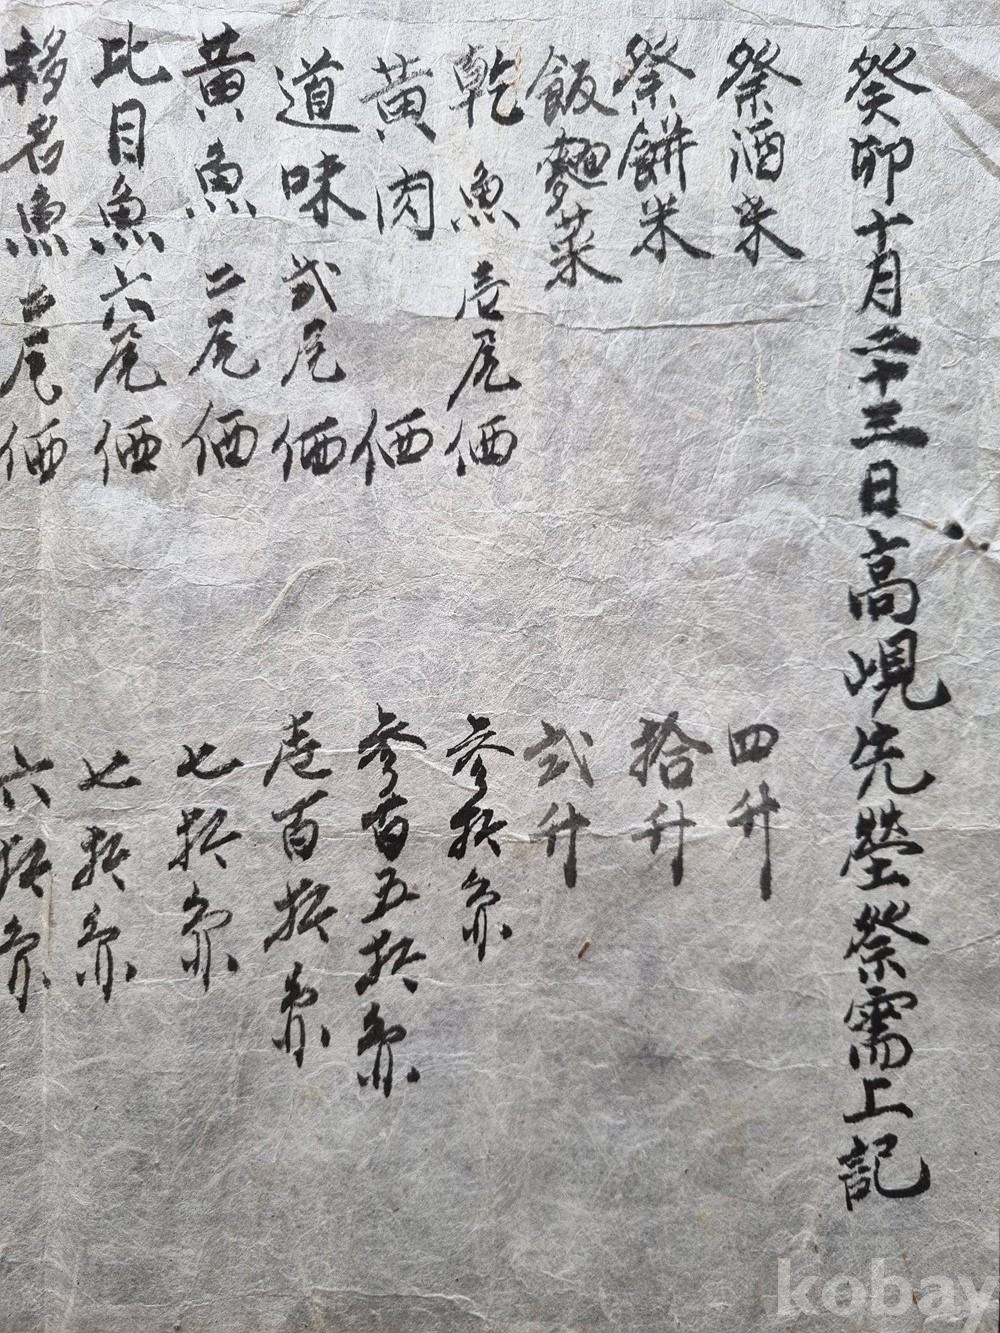 癸卯十月二十三日高峴先塋祭需上記
祭酒米 四升
祭餠米 拾升
飯麵菜 弍升
乾魚 壱尾価 参拾
黃肉 価 参百五拾
道味 弍尾価 壱百拾
黃魚 二尾価 七拾
比目魚 六尾価 七拾
移名魚 二尾価 六拾
kobay